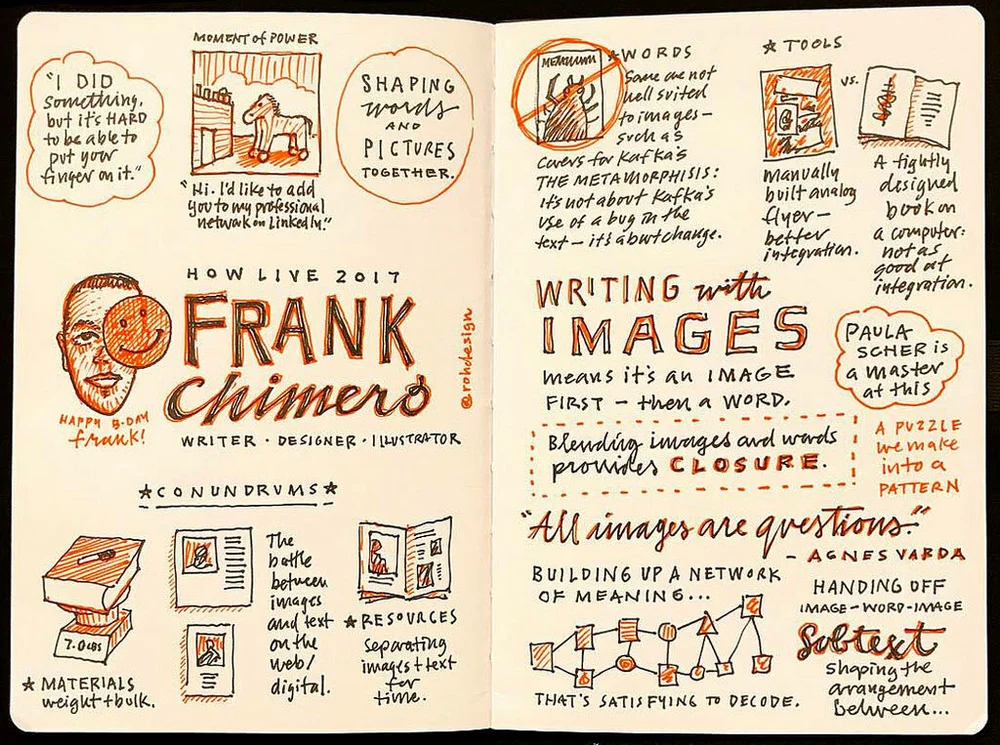 "I DID
something,
but it's HARD
to be able to
put your
finger on it."
MOMENT of POWER
"Hi. I'd like to add
you to my professional
network on LinkedIn."
SHAPING
words
AND
PICTURES
TOGETHER.
HOW LIVE 2017
FRANK
Chimero
WRITER · DESIGNER · ILLUSTRATOR
@rohdesign
HAPPY B-DAY
frank!
★CONUNDRUMS★
7.0 LBS
★ MATERIALS
weight + bulk.
The
battle
between
images
and text
on the
web/
digital.
★RESOURCES
separating
images + text
for
time.
METAMORPH
★WORDS
Some are not
well suited
to images –
such as
covers for Kafka's
THE METAMORPHISIS:
it's not about Kafka's
use of a bug in the
text – it's about change.
★ TOOLS
vs.
manually
built analog
flyer –
better
integration.
A tightly
designed
book on
a computer:
not as
good at
integration.
WRITING with
IMAGES
means it's an IMAGE
FIRST – then a WORD.
PAULA
SCHER is
a master
at this
Blending images and words
provides CLOSURE.
A PUZZLE
we make
into a
PATTERN
"All images are questions."
– AGNES VARDA
BUILDING UP A NETWORK
OF MEANING...
THAT'S SATISFYING TO DECODE.
HANDING OFF
IMAGE–WORD–IMAGE
Subtext
shaping the
arrangement
between...